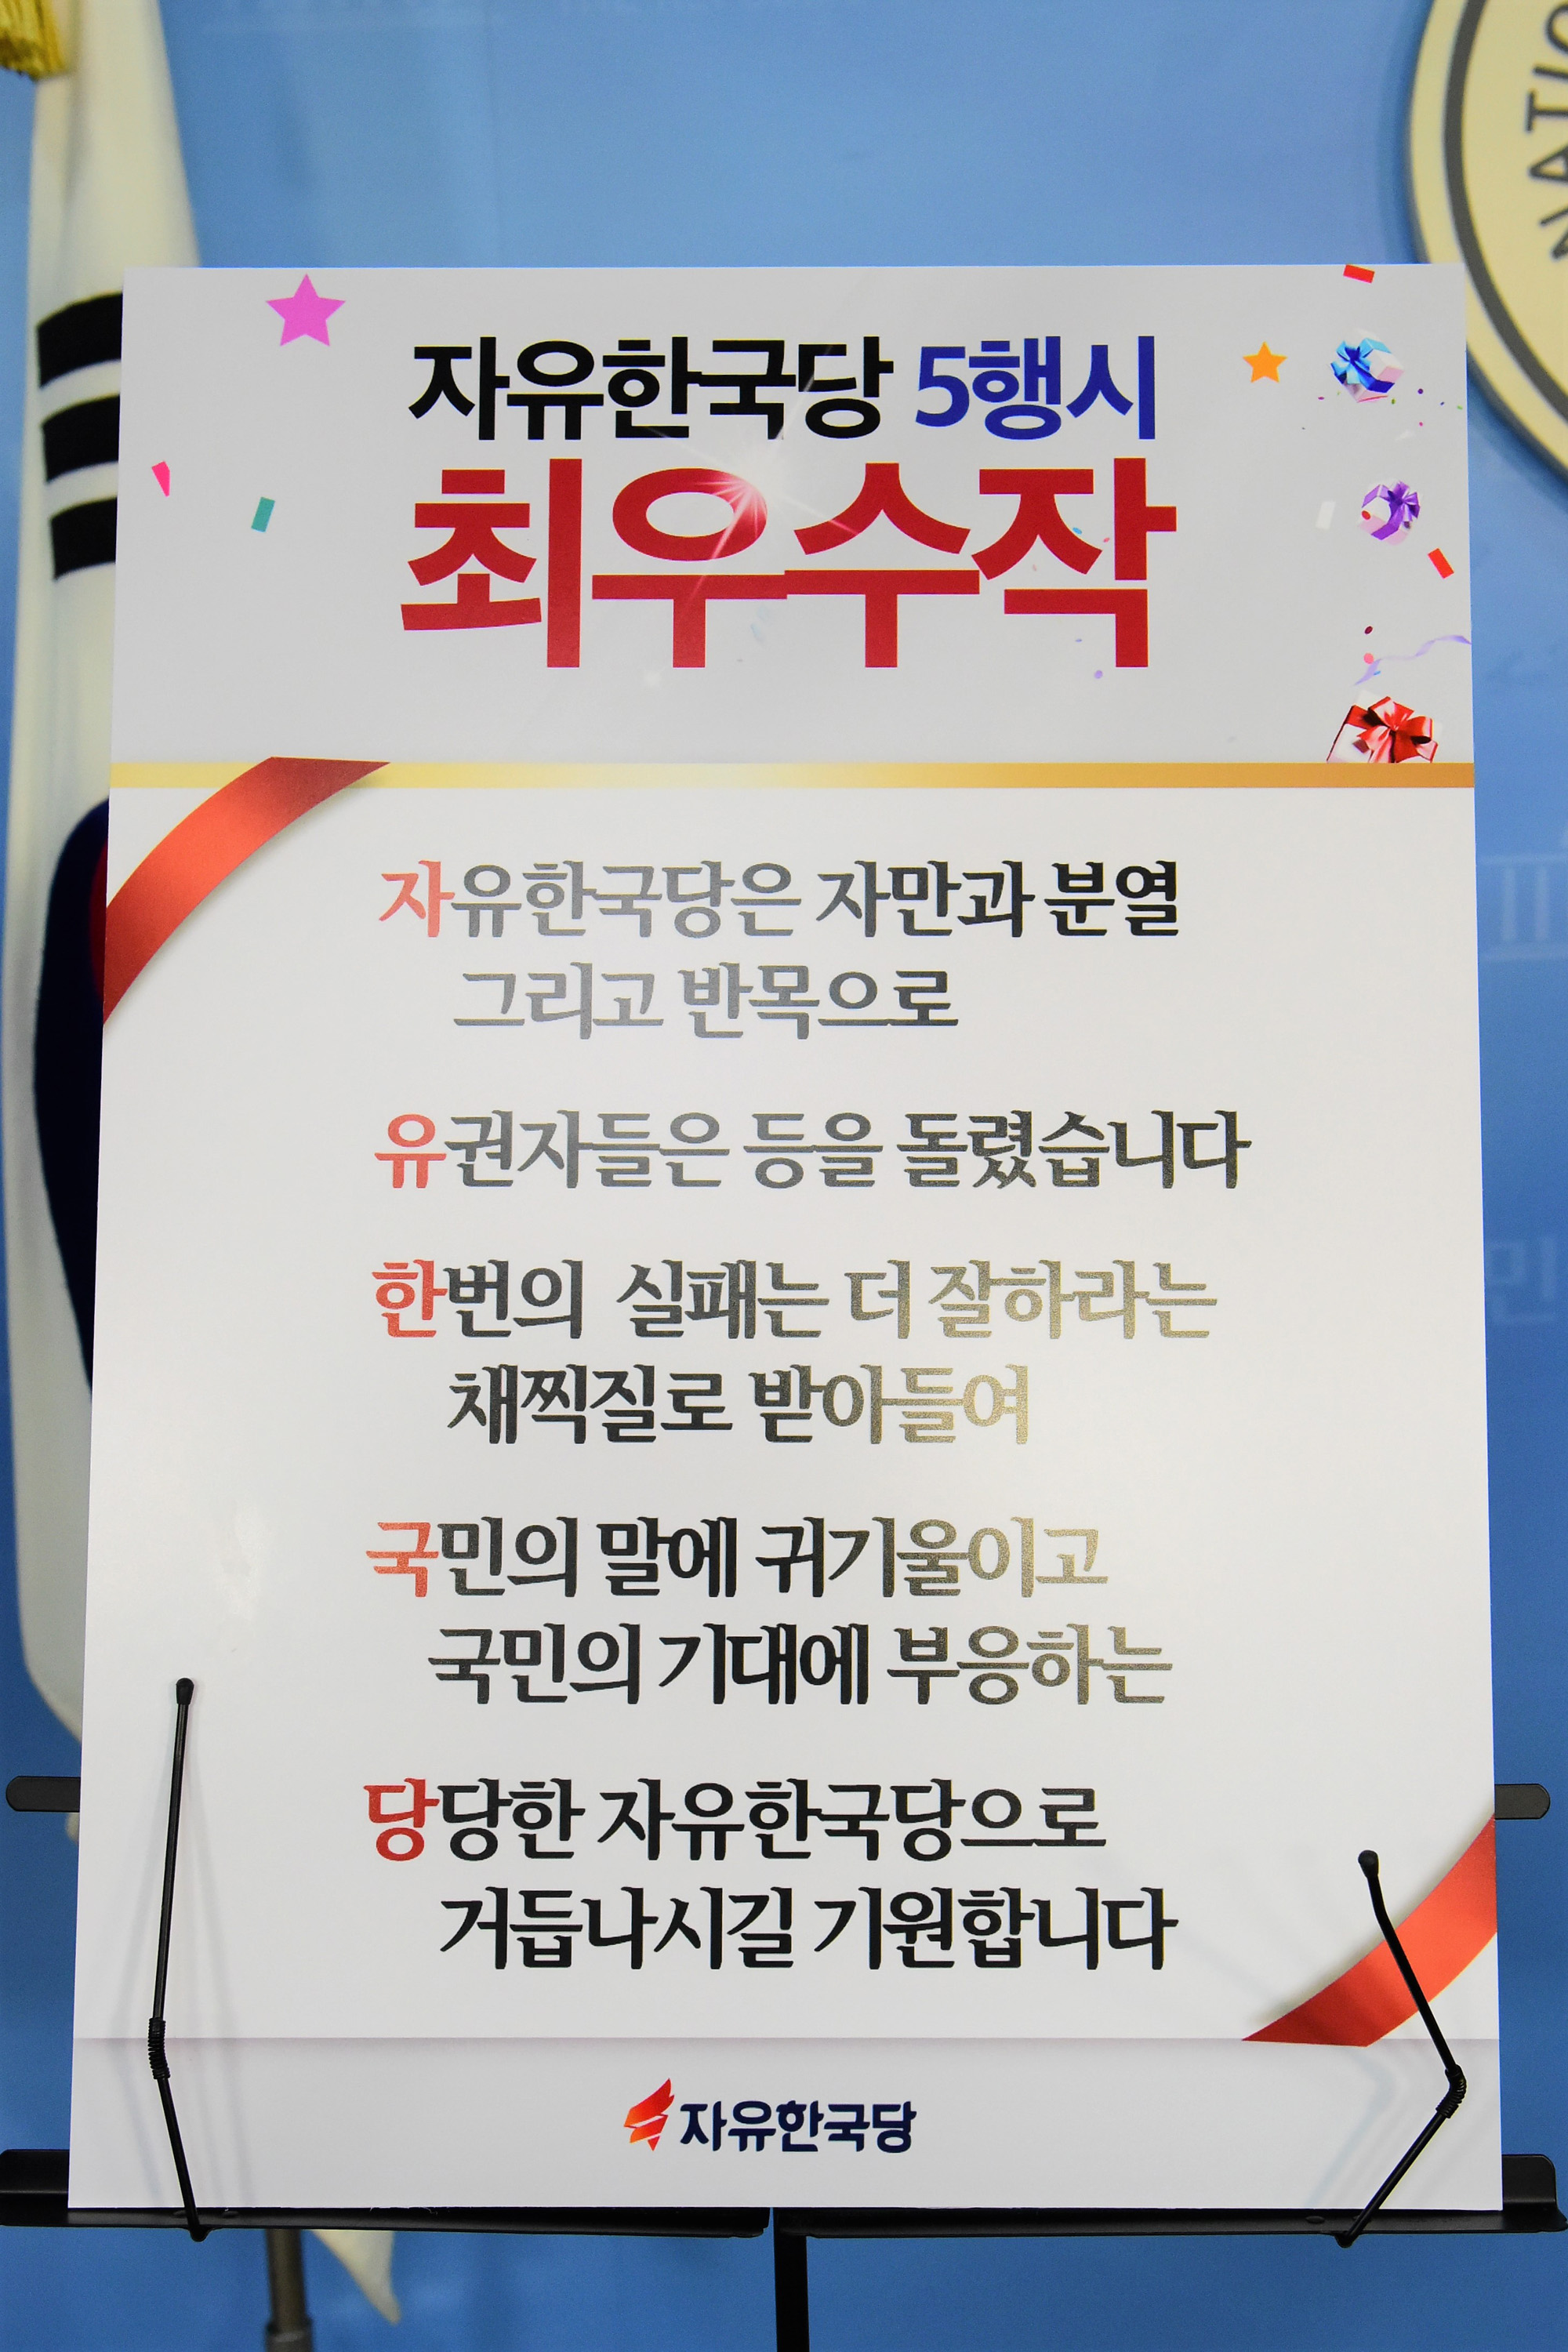 자유한국당 5행시
최우수작
자유한국당은 자만과 분열
그리고 반목으로
유권자들은 등을 돌렸습니다
한번의 실패는 더 잘하라는
채찍질로 받아들여
국민의 말에 귀기울이고
국민의 기대에 부응하는
당당한 자유한국당으로
거듭나시길 기원합니다
자유한국당